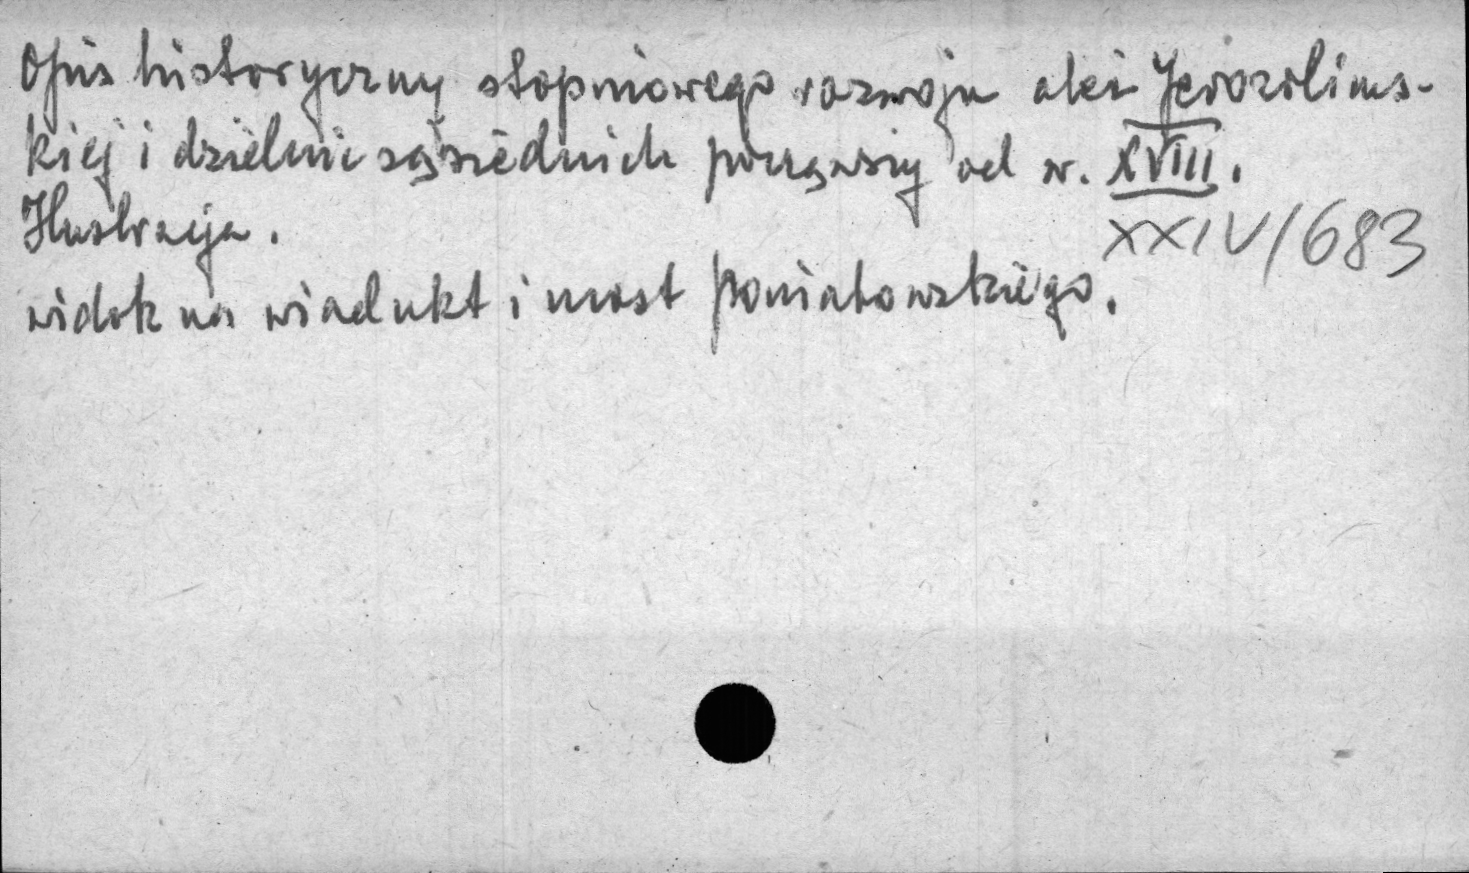 Opis historyczny stopniowego rozwoju alei Jerozolims-
kiej i dzielnic sąsiednich począwszy od w. XVIII.
Ilustracja.
XXIV/683
widok na wiadukt i most Poniatowskiego.